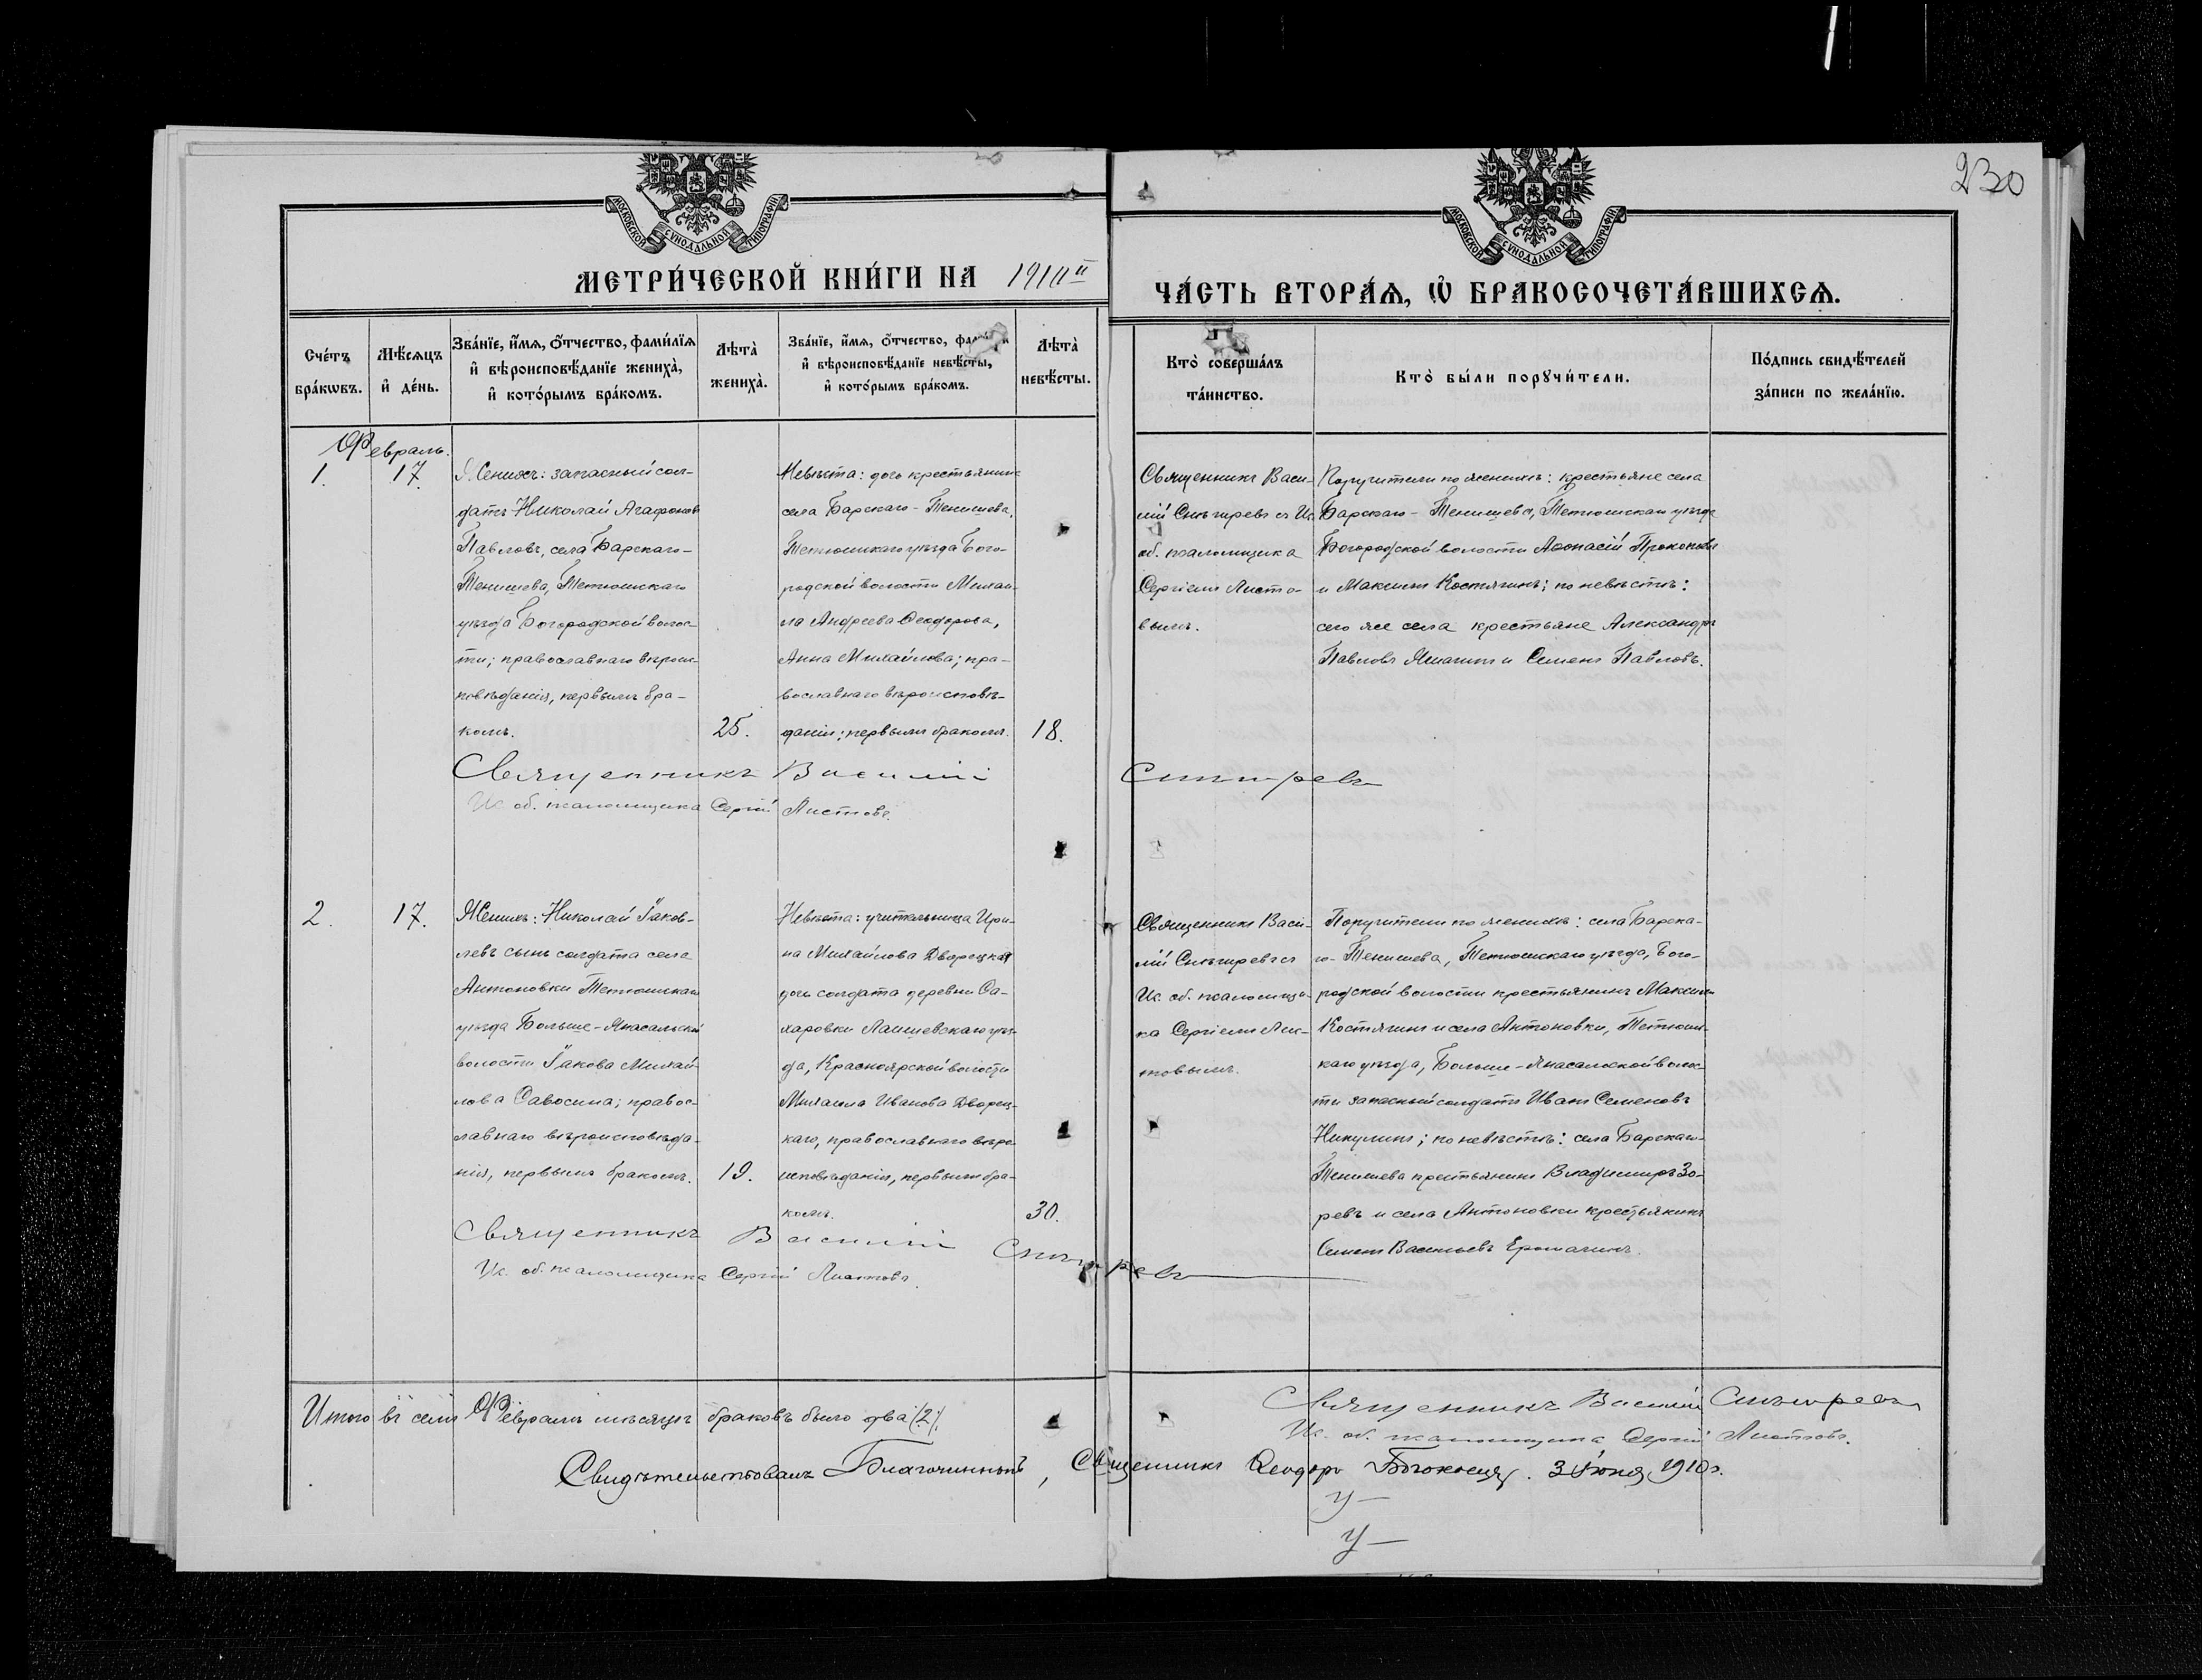 230
МОСКОВСКОЙ СУНОДАЛЬНОЙ ТИПОГРАФІИ
МОСКОВСКОЙ СУНОДАЛЬНОЙ ТИПОГРАФІИ
МЕТРИ́ЧЕСКОЙ КНИ́ГИ НА
ЧА́СТЬ ВТОРА́Ѧ, Ѽ БРАКОСОЧЕТА́ВШИХСѦ.
Сче́тъ бра́кѡвъ.
Мѣ́сѧцъ и҆ де́нь.
Зва́нїе, и҆́мѧ, о҆́тчество, фами́лїѧ и҆ вѣроисповѣ́данїе жениха̀, и҆ кото́рымъ бра́комъ.
Лѣта̀ жениха̀.
Зва́нїе, и҆́мѧ, о҆́тчество, и҆ вѣроисповѣ́данїе невѣ́сты, и҆ кото́рымъ бра́комъ.
Лѣта̀ невѣ́сты.
Кто̀ соверша́лъ та́инство.
Кто̀ бы́ли порꙋчи́тели.
По́дпись свидѣ́телей за́писи по жела́нїю.
Февраль.
1.
17.
Женихъ: запасный сол-
датъ Николай Агафоновъ
Павловъ, села Барскаго-
Тенишева, Тетюшскаго
уѣзда Богородской волос-
ти; православнаго вѣроис-
повѣданія, первымъ бра-
комъ.
25.
Невѣста: дочь крестьянина
села Барскаго-Тенишева,
Тетюшскаго уѣзда Бого-
родской волости Михаи-
ла Андреева Ѳеодорова,
Анна Михайлова; пра-
вославнаго вѣроисповѣ-
данія; первымъ бракомъ.
18.
Священникъ Васи-
лій Снѣгиревъ съ Ис.
об. псаломщика
Сергіемъ Листо-
вымъ.
Поручители по женихѣ: крестьяне села
Барскаго-Тенишева, Тетюшскаго уѣзда
Богородской волости Аѳонасій Прокопьевъ
и Максимъ Костягинъ; по невѣстѣ:
сего же села крестьяне Александръ
Павловъ и Семенъ Павловъ.
Священникъ Василій Снѣгиревъ
Ис. об. псаломщика Сергій Листовъ.
2.
17.
Женихъ: Николай Іаков-
левъ сынъ солдата села
Антоновки Тетюшскаго
уѣзда Больше-Атнасальской
волости Іакова Михай-
лова Савосина; правос-
лавнаго вѣроисповѣда-
нія, первымъ бракомъ.
19.
Невѣста: учительница Ири-
на Михайлова Дворецкая
дочь солдата деревни Са-
харовки Лаишевскаго уѣз-
да, Красноярской волости
Михаила Иванова Дворец-
каго, православнаго вѣро-
исповѣданія, первымъ бра-
комъ.
30.
Священникъ Васи-
лій Снѣгиревъ съ
Ис. об. псаломщи-
ка Сергіемъ Лис-
товымъ.
Поручители по женихѣ: села Барска-
го-Тенишева, Тетюшскаго уѣзда, Бого-
родской волости крестьянинъ Максимъ
Костягинъ и села Антоновки, Тетюшс-
каго уѣзда, волос-
ти запасный солдатъ Иванъ Семеновъ
Никулинъ; по невѣстѣ: села Барскаго-
Тенишева крестьянинъ Владимиръ Зо-
ревъ и села Антоновки крестьянинъ
Семенъ Васильевъ
Священникъ Василій Снѣгиревъ
Ис. об. псаломщика Сергій Листовъ.
Итого въ семъ Февралѣ мѣсяцѣ браковъ было два (2).
Священникъ Василій Снѣгиревъ
Ис. об. псаломщика Сергій Листовъ.
Свидѣтельствовалъ Благочинный, Священникъ Ѳеодоръ 3 Іюня 1910 г.